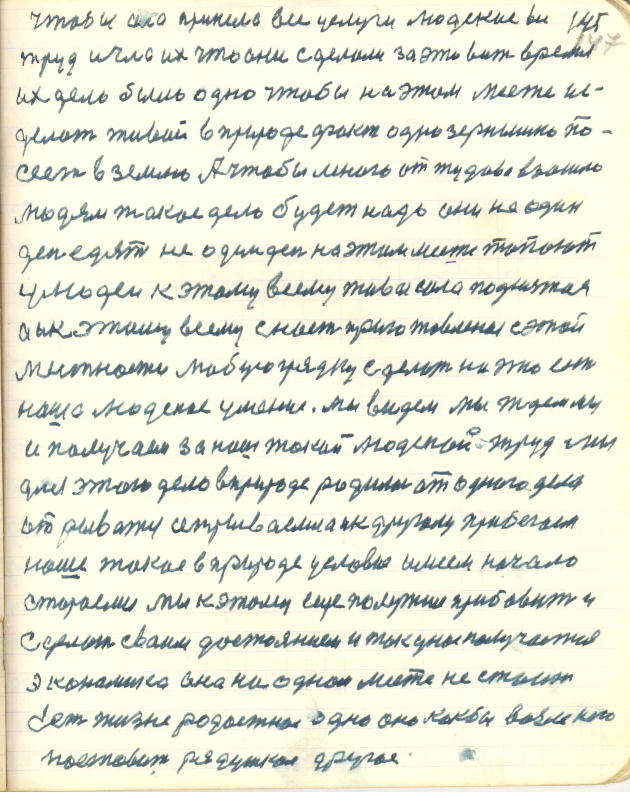 чтобы она приняла все услуги людские ви 145
147
труд и чла их что они сделали за это вит время
их дело было одно чтобы на этом месте из-
делат живой в природе факт одно зернышко по-
сеет в землю А чтобы много от тудова взошло
людям такое дело будет надо они не один
ден едят не один ден на этом месте топают
у людей к этому всему жива сила поднятая
а и к этому всему снаст приготовлена с этой
местности любую грядку сделат на это ест
наше людское умение. мы видем мы ждем мы
и получаем за наш такой людской труд мы
для этого дело в природе родили от одного дела
от рываемся а к другому прибегаем
наше такое в природе условие имеем начало
стараемся мы к этому еще получше прибавит и
сделат своим достоянием и так у нас получается
экономика она на одном месте не стоит
Ест жизне радостное одно оно как бы возле него
поставит рядушком другое